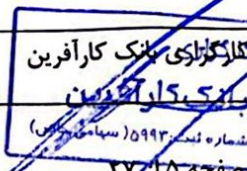 کارگزاری بانک کارآفرین
بانک کارآفرین
شماره ثبت: ۵۹۹۳ (سهامی خاص)
صفحه ۱۵ از ۲۷